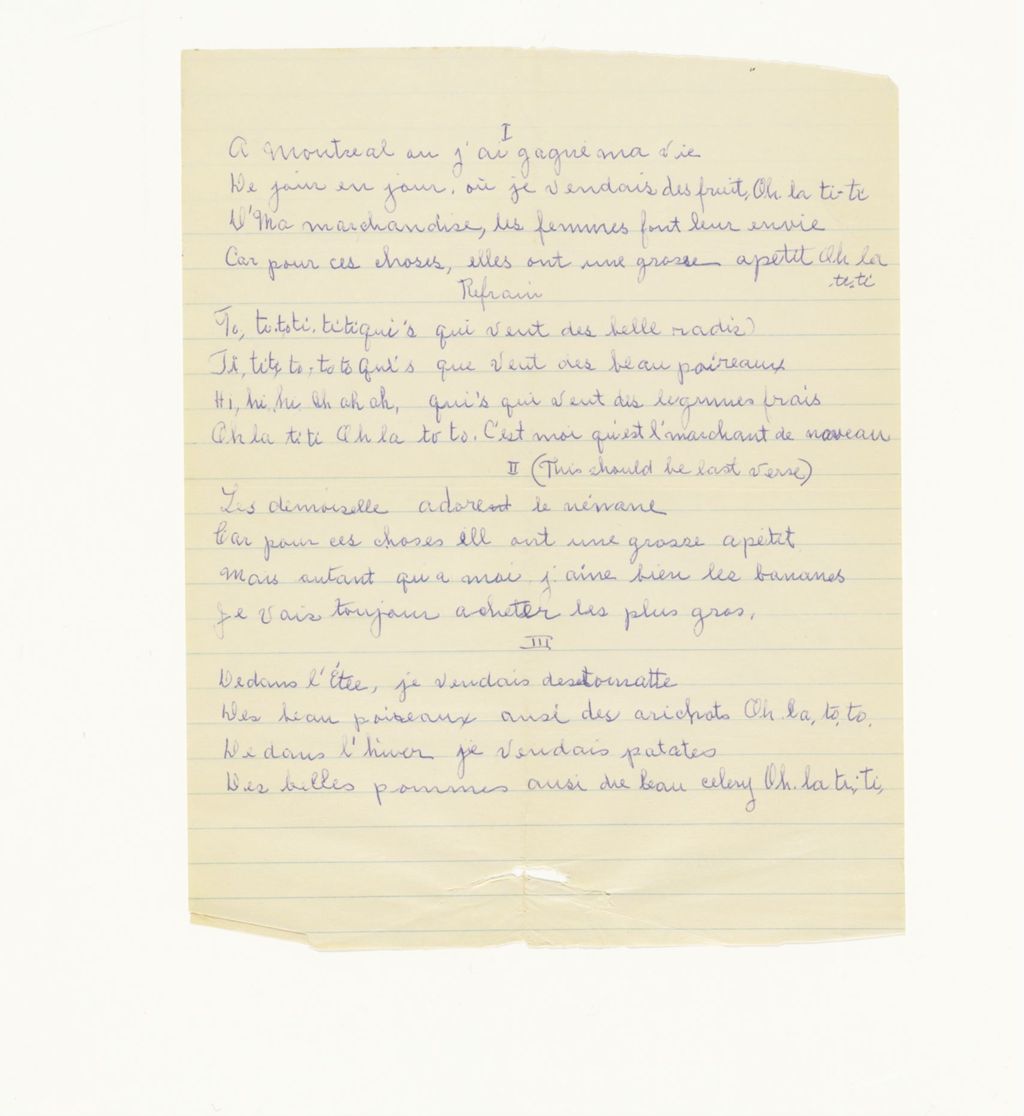 I
A Montreal ou j'ai gagné ma vie
De jour en jour, où je vendais des fruit, Oh la ti-ti
D'Ma marchandise, les femmes font leur envie
Car pour ces choses, elles ont une grosse apetit Oh la
ti-ti
Refrain
To, to.toti. titiqui's qui veut des belle radis
Ti, titi, to, to to Qui's que veut des beau poireaux
Hi, hi, hi. Oh oh oh, qui's qui veut des legumes frais
Oh la ti ti Oh la to to. C'est moi qu'est l'marchant de naveau
II (This should be last verse)
Les demoiselle adorent le
Car pour ces choses ell ont une grosse apetit
Mais autant qu'a moi j'aine bien les bananes
Je vais toujour acheter les plus gros.
III
Dedans l'Étee, je vendais des tomatte
Des beau poireaux ausi des arichots Oh. la, to, to.
Dedans l'hiver je vendais patates
Des belles pommes ausi du beau celery Oh. la ti, ti,